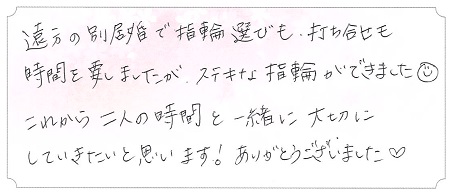 遠方の別居婚で指輪選びも、打ち合せも
時間を要しましたが、ステキな指輪ができました☺
これから二人の時間と一緒に大切に
していきたいと思います！ありがとうございました♡